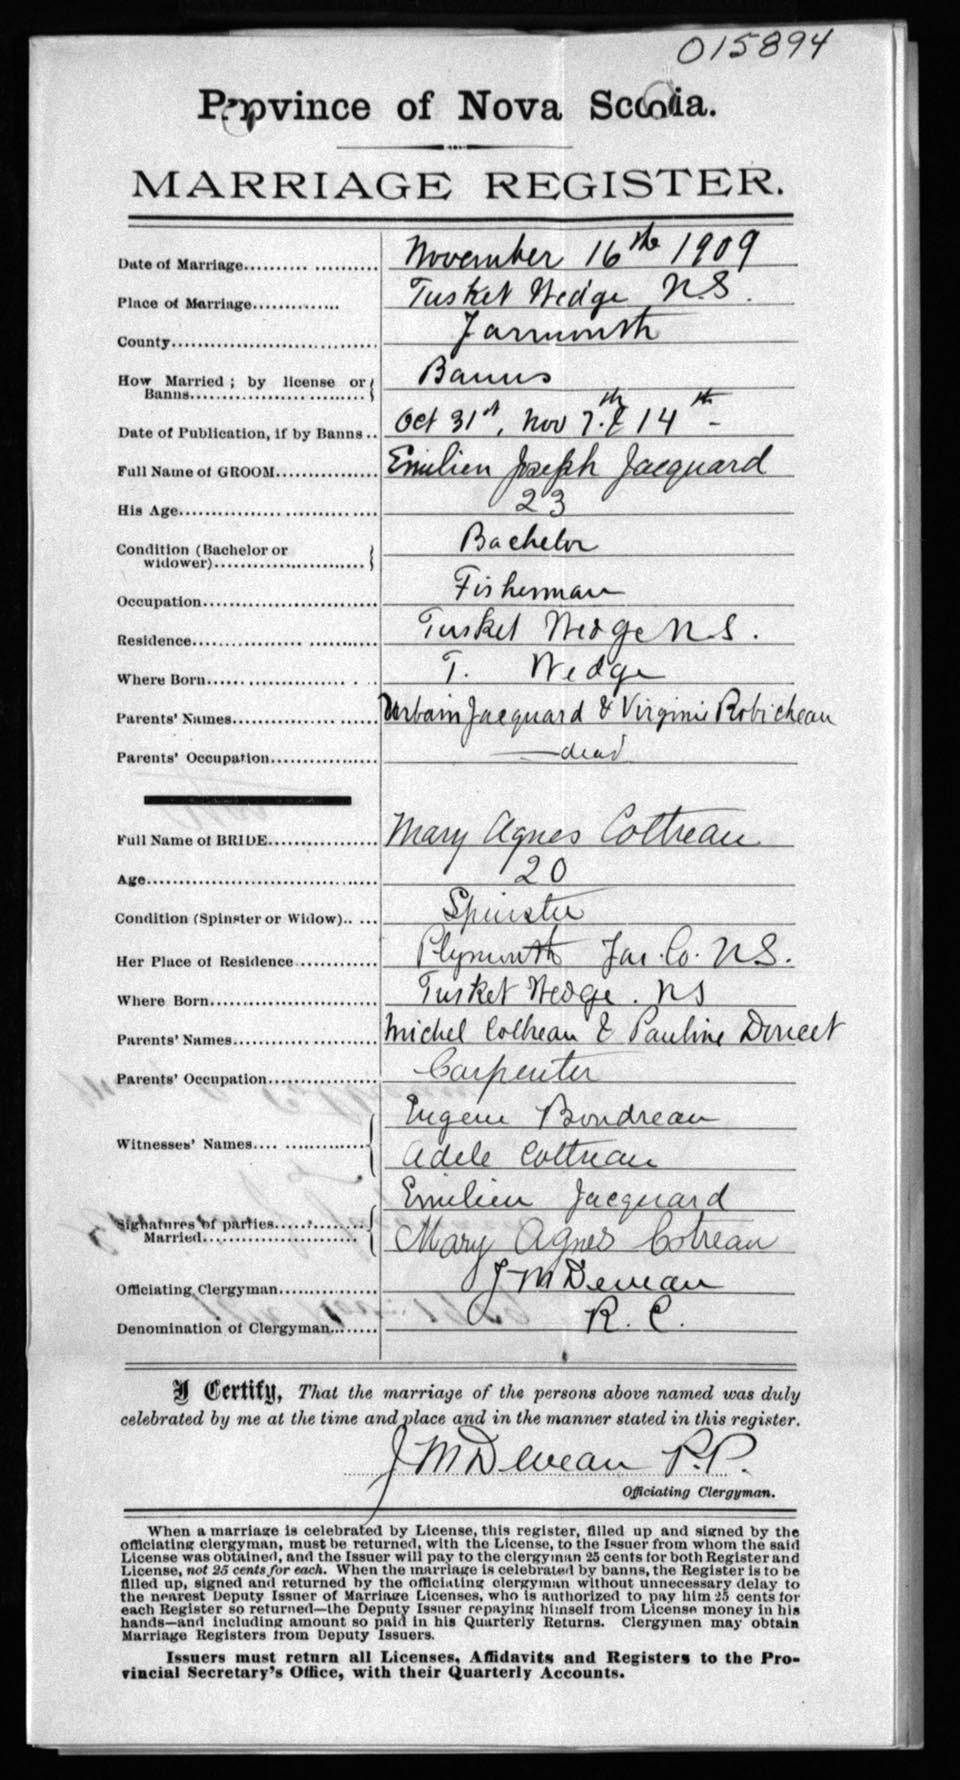 015894
Province of Nova Scotia.
MARRIAGE REGISTER.
Date of Marriage.......... .......... November 16th 1909
Place of Marriage............. Tusket Wedge N.S.
County................................. Yarmouth
How Married ; by license or Banns.................. .......... Banns
Date of Publication, if by Banns .. Oct 31st, Nov 7th & 14th -
Full Name of GROOM................ Emilien Joseph Jacquard
His Age................................ 23
Condition (Bachelor or widower)........................ Bachelor
Occupation............................. Fisherman
Residence................ .......... Tusket Wedge N.S.
Where Born.................... . . T. Wedge
Parents' Names................ ...... Urbain Jacquard & Virginie Robicheau
Parents' Occupation................ dead
Full Name of BRIDE................. Mary Agnes Cottreau
Age................................... 20
Condition (Spinster or Widow).. ... Spinster
Her Place of Residence ............ Plymouth Yar. Co. N.S.
Where Born......................... Tusket Wedge. NS
Parents' Names..................... Michel Cottreau & Pauline Doucet
Parents' Occupation................ Carpenter
Witnesses' Names.... .............. Eugene Boudreau
Adele Cottreau
Signatures of parties Married........................ Emilien Jacquard
Mary Agnes Cotreau
Officiating Clergyman............... J M Deveau
Denomination of Clergyman........ R. C.
I Certify, That the marriage of the persons above named was duly
celebrated by me at the time and place and in the manner stated in this register.
J M Deveau P.P.
Officiating Clergyman.
When a marriage is celebrated by License, this register, filled up and signed by the
officiating clergyman, must be returned, with the License, to the Issuer from whom the said
License was obtained, and the Issuer will pay to the clergyman 25 cents for both Register and
License, not 25 cents for each. When the marriage is celebrated by banns, the Register is to be
filled up, signed and returned by the officiating clergyman without unnecessary delay to
the nearest Deputy Issuer of Marriage Licenses, who is authorized to pay him 25 cents for
each Register so returned—the Deputy Issuer repaying himself from License money in his
hands—and including amount so paid in his Quarterly Returns. Clergymen may obtain
Marriage Registers from Deputy Issuers.
Issuers must return all Licenses, Affidavits and Registers to the Pro-
vincial Secretary's Office, with their Quarterly Accounts.